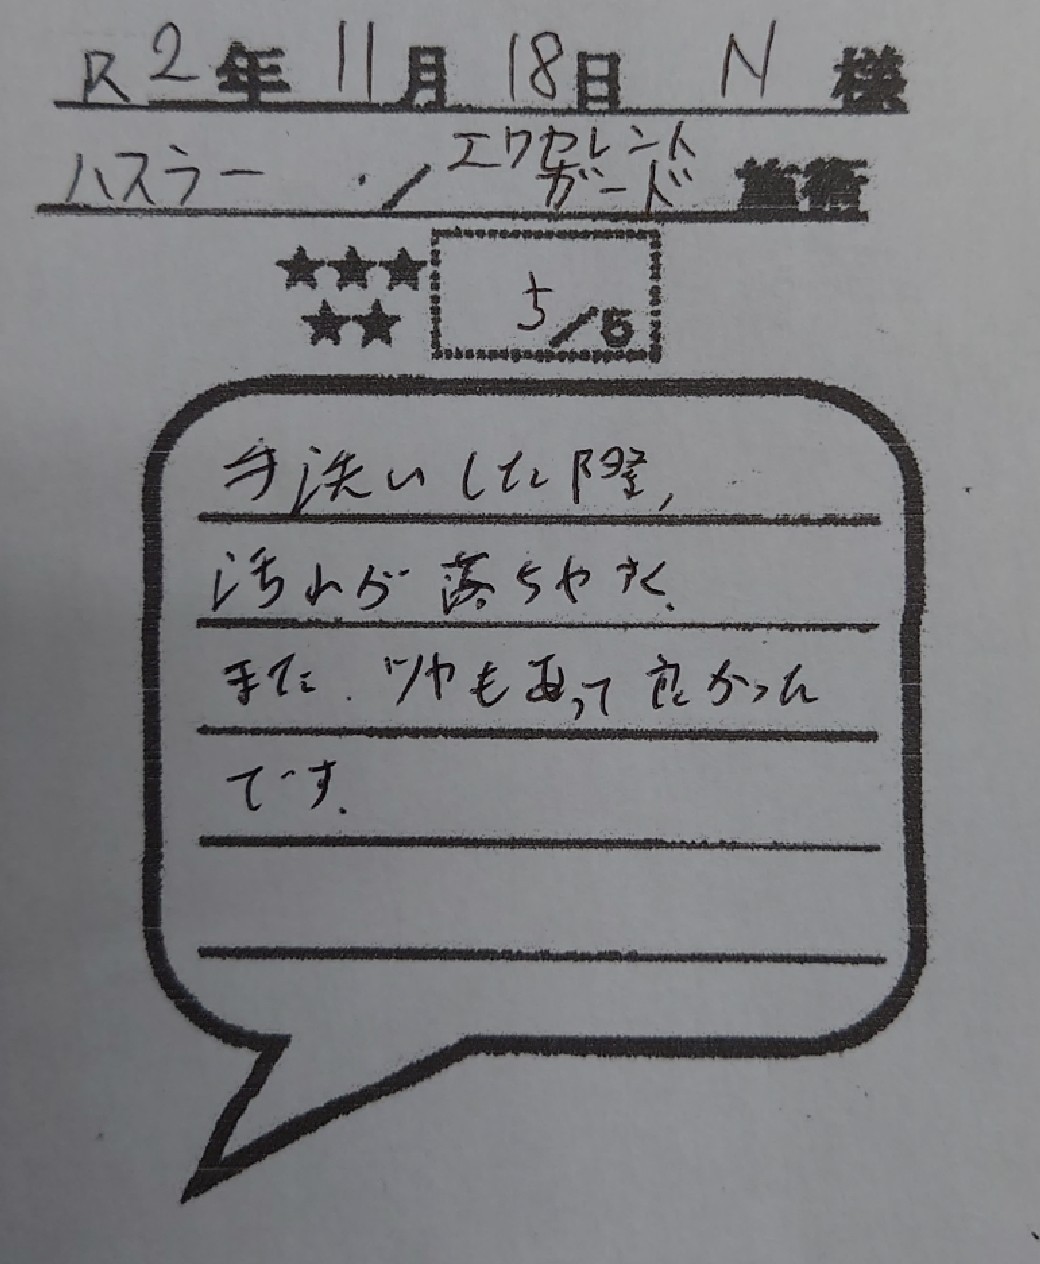 R2年 11月 18日 N 様
ハスラー ・/エクセレントガード 施術
★★★
★★
5/5
手洗いした際、
汚れが落ちやすく、
また、ツヤもあって良かった
です。